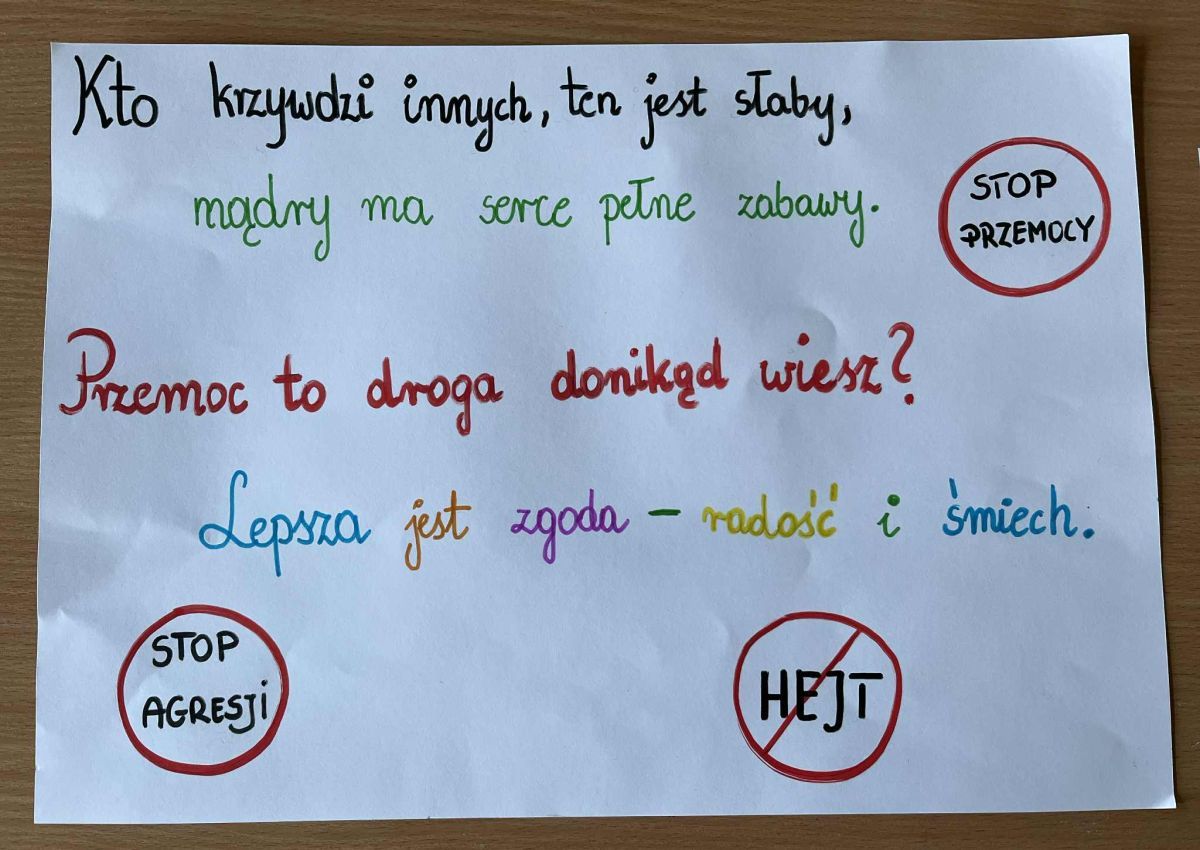 Kto krzywdzi innych, ten jest słaby,
mądry ma serce pełne zabawy.
STOP
PRZEMOCY
Przemoc to droga donikąd wiesz?
Lepsza jest zgoda – radość i śmiech.
STOP
AGRESJI
HEJT